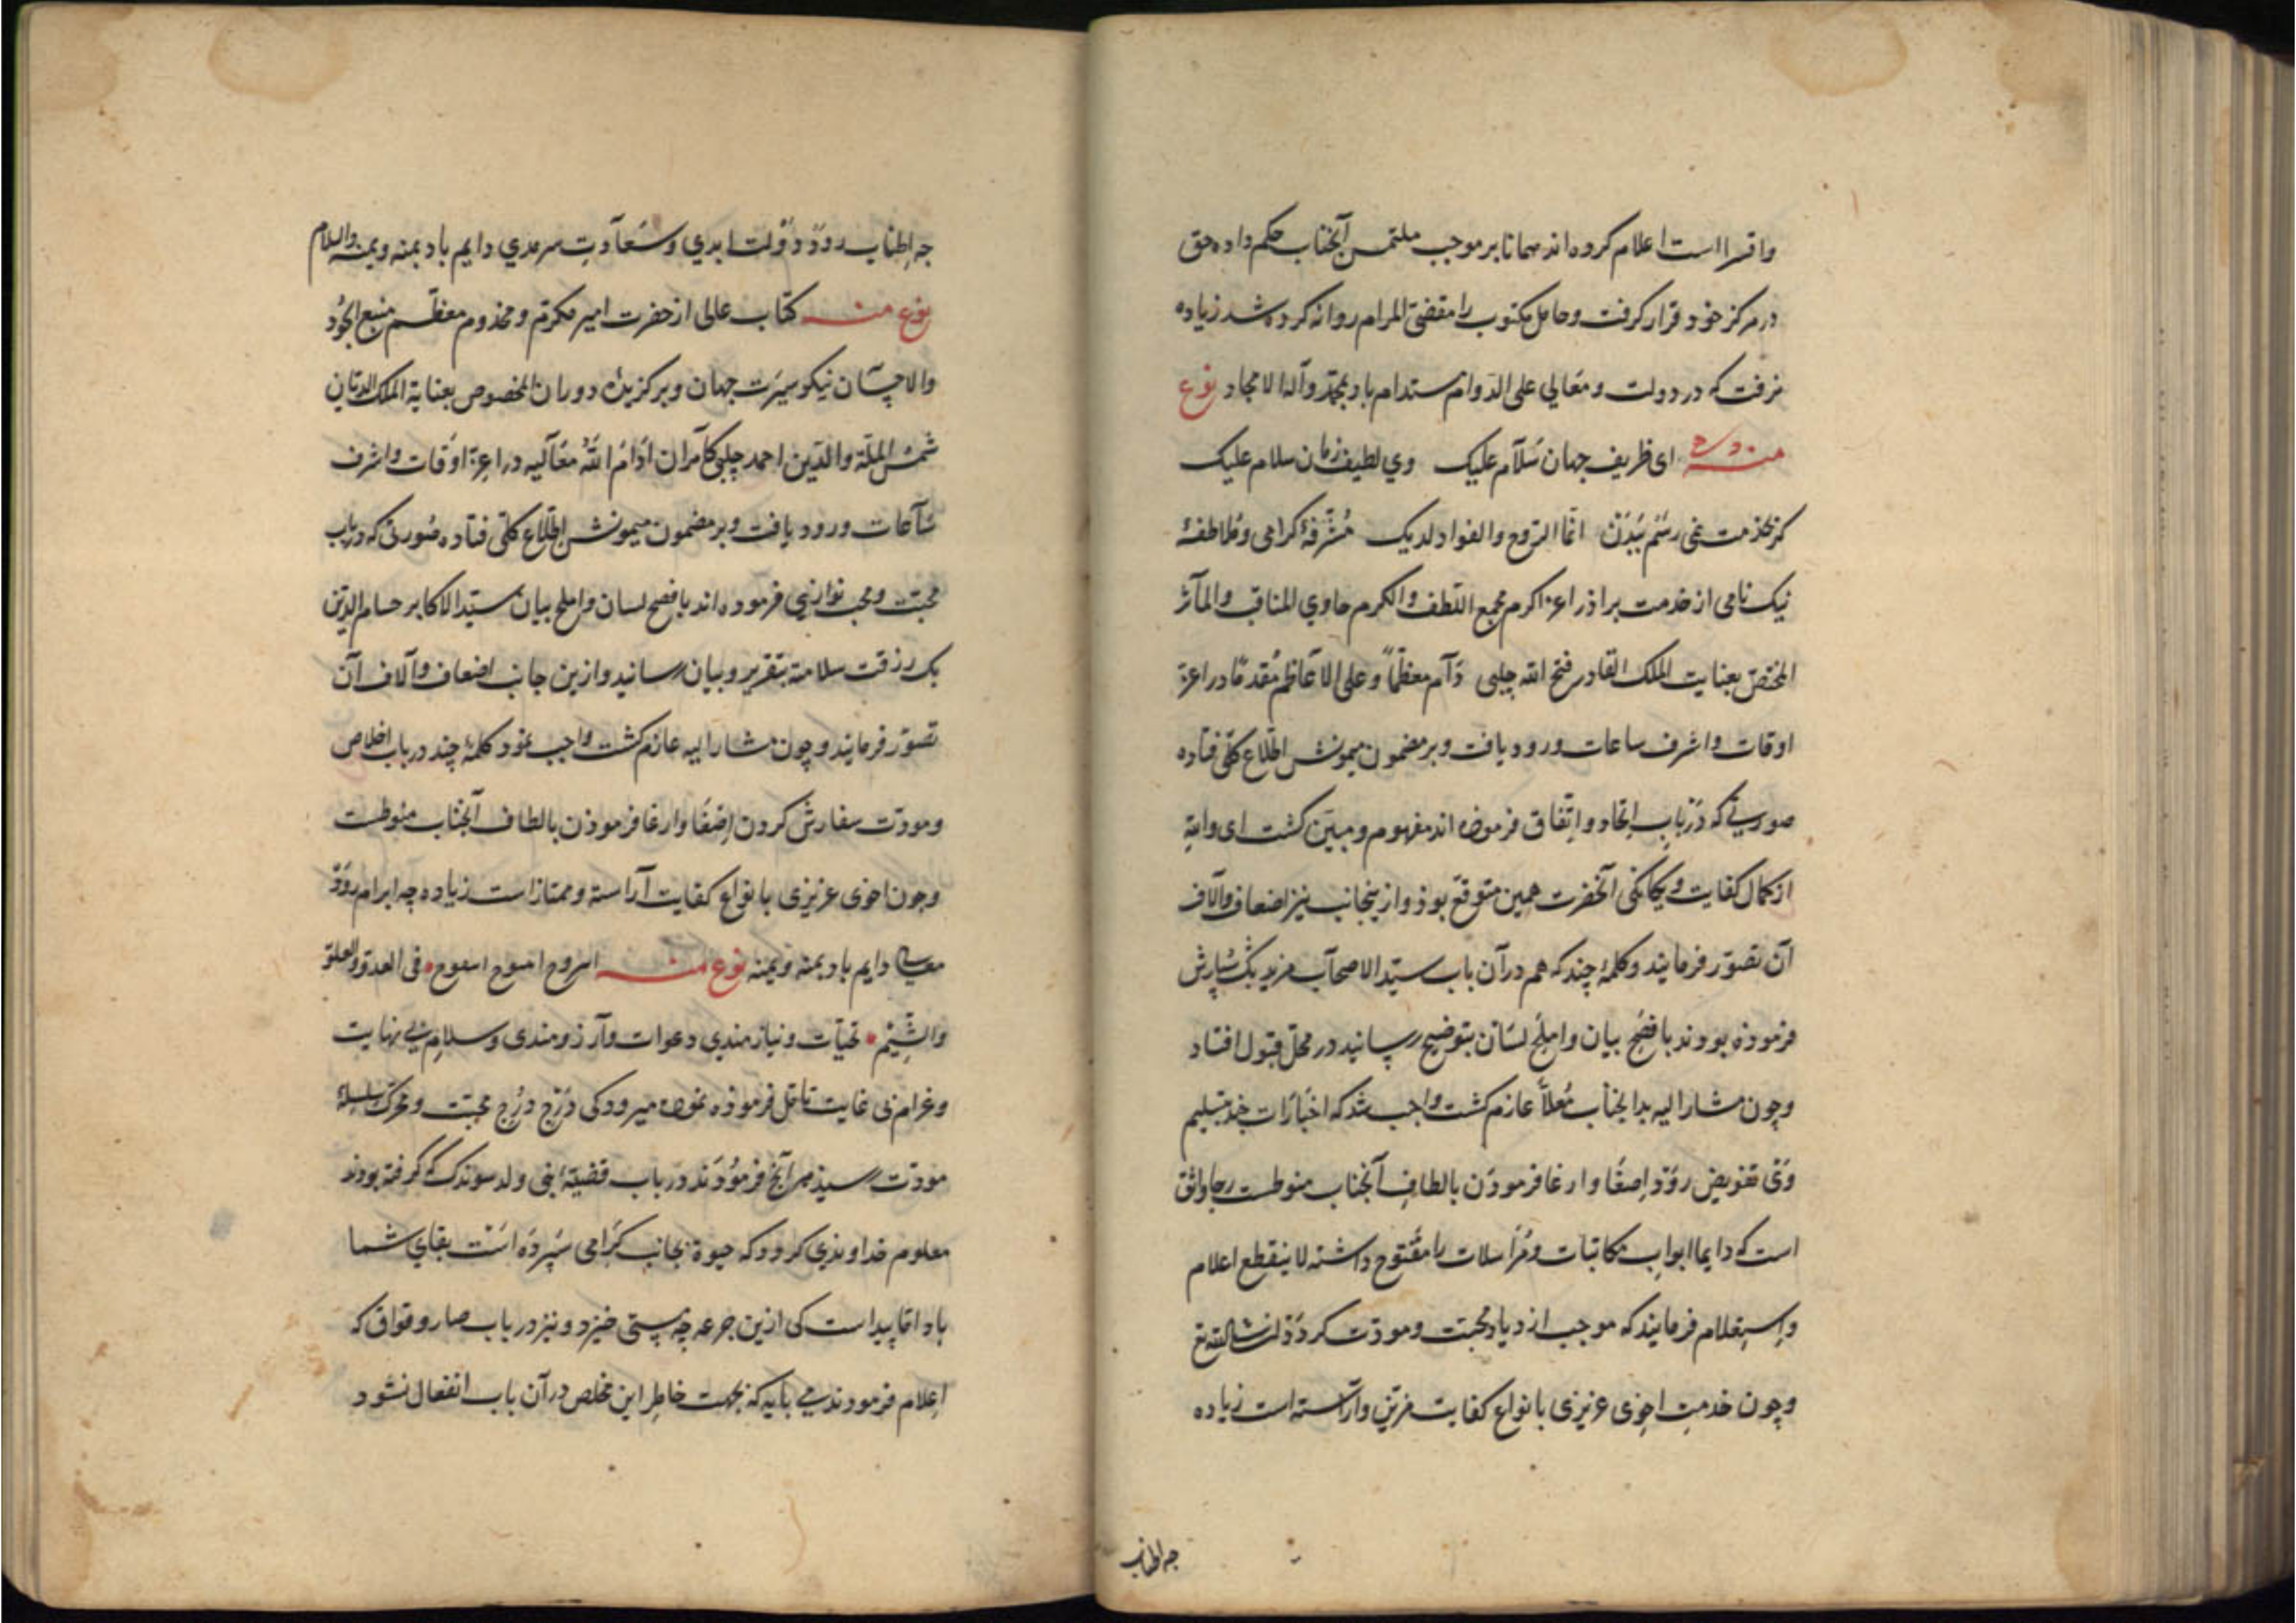 واقرا است اعلام کرده اند همانا بر موجب ملتمس آنجناب حکم داده حق
در مرکز خود قرار کرفت و حامل مکتوب را مقضی المرام روانه کرده شد زیاده
نرفت که در دولت و معالی علی الدوام مستدام باد بمحمد وآله الامجاد نوع
منه ای ظریف جهان سَلآم علیک وی لطیف زمان سلام علیک
کرنخدمت نمی رسَم ببَدَن انما الروح والفواد لدیک مُشَرَّفۀ کرامی و مُلاطفۀ
نیک نامی از خدمت براذر اعز اکرم مجمع اللطف والکرم حاوی المناقب والمآثر
المختص بعنایت الملک القادر فتح الله چلبی دَآم معظمًا وعلی الاعَاظم مُقدمًا در اعز
اوقات واشرف ساعات ورود یافت وبر مضمون میمونش اطلاع کلّی فتاده
صورتی که دَر بابِ اِتحاد واِتّفاق فرموذه اند مفهوم ومبیَّن کشت
از کمال کفایت ویکانکی آنحضرت همین متوقع بوذ وازینجانب نیز اضعاف وآلاف
آن تصوّر فرمایند وکلمۀ چند که هم در آن باب سیّد الاصحآب مزید بک سپارش
فرموذه بودند بافصَحِ بیان واملَحِ لسَان بتوضیح رسانید در محل قبول افتاد
وچون مشار الیه بدانجنآب مُعلاّ عازم کشت واجب شد که اخبارات چند بتسلیم
تفویض روَد اِصغا وارغا فرمودَن بالطافِ آنجناب منوطست رجا واثق
است که دایما ابوابِ مکاتبات ومُرَاسلات را مفتوح داشته لا ینقطع اعلام
واِستِعلام فرمایند که موجب ازدیاد محبت ومودّت کردَدْ ان شا الله تع
وچون خدمتِ اخِوی عزیزی بانواع کفایت مزیّن وآرآسته است زیاده
چه اطناب
چه اِطناب روَد دَوُلت ابدی وسَعآدتِ سرمدی دایم باد بمنه ویمنه والسلام
نوع منه کتاب عالی از حضرت امیر مکرّم ومخذوم معظّم منبع الجُود
والاحِسَان نیکو سیرَت جهان وبرکزیدۀ دوران المخصوص بعنایة الملک الدیّان
شمسُ الملّة والدّین احمد چلبی کآمرَان اَدَامُ اللّهُ مَعَآلیه در اعزِّ اوَقات واشرف
سَآعات ورود یافت وبر مضمون میمونش اطّلاع کلّی فتاده صُورتی که در باب
محبّت ومحب نوازیی فرموده اند بافصح لسان واملح بیان سیّد الاکابر حسام الدین
بک رزقت سلامته بتقریر وبیان رسانید وازین جانب اضعاف وآلاف آن
تصوّر فرمایند وچون مشار الیه عازم کشت واجب نمود کلمۀ چند در باب اخلاص
ومودّت سفارش کردن اِصغَا وارغا فرموذن بالطاف آنجناب منوطست
وچون اخوی عزیزی بانواع کفایت آراسته وممتاز است زیاده چه ابرام روَدْ
معالی دایم باد بمنه ویمنه نوع منه فی الغدوّ والعلوّ
والشِّیَمْ تحیّات ونیازمندی دعوات وآرزومندی وسلام بی نهایت
وغرام بی غایت تامل فرموذه نموده میرود کی دَرْج دُرْج محبّت ومحرّک سلسلۀ
مودّت رسید هر آنچ فرمُودَند در باب قضیّۀ ابنی ولد سوندک که کرفته بودند
معلوم خداوندی کردد که حیوة بجانب کرَامی سُپردَه است بقای شما
باد امّا پیداست کی ازین جرعه چه مستی خیزد ونیز در باب صارو قواق که
اِعلام فرمودند می باید که بجهت خاطر این مخلص در آن باب انفعال نشود